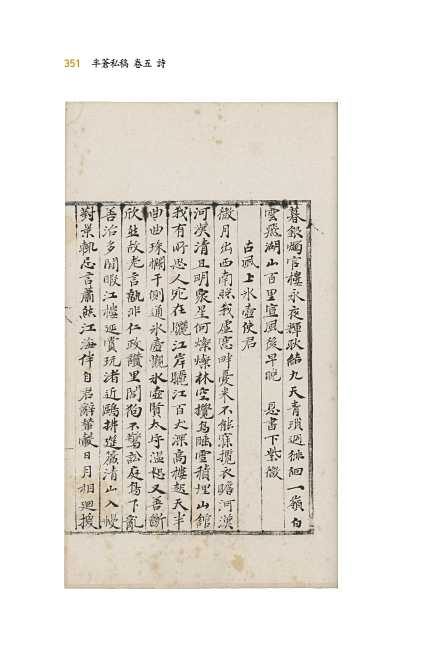 351 半蒼私稿 卷五 詩
暮銀燭官樓永夜輝耿結九天青瑣迥徘徊一嶺白
雲飛湖山百里宣風後早晚 恩書下紫微
古風上氷壺使君
微月出西南照我虛窓畔憂來不能寐攬衣瞻河漢
河漢清且明衆星何燦燦林空攪鳥睡雪積埋山館
我有所思人宛在驪江岸驪江百丈深高樓起天半
曲曲珠欄干側通氷壺觀氷壺賢太守溫恕又善斷
欣 故老言孰非仁政讚里閭狗不驚訟庭鳥下亂
吾治多閒暇江樓延賞玩渚近鷗拂筵簾清山入幔
對景輒忘言蕭然江海伴自君辭禁 日月相迴